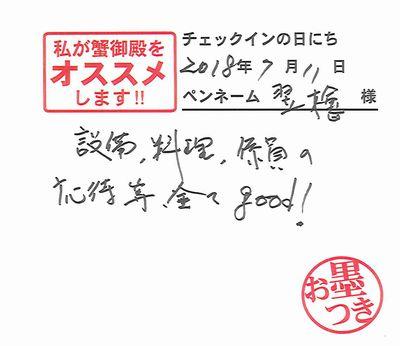 私が蟹御殿を
オススメ
します!!
チェックインの日にち
2018年7月11日
ペンネーム 翌檜 様
設備,料理,係員の
応待等,全てgood!
お墨
つき